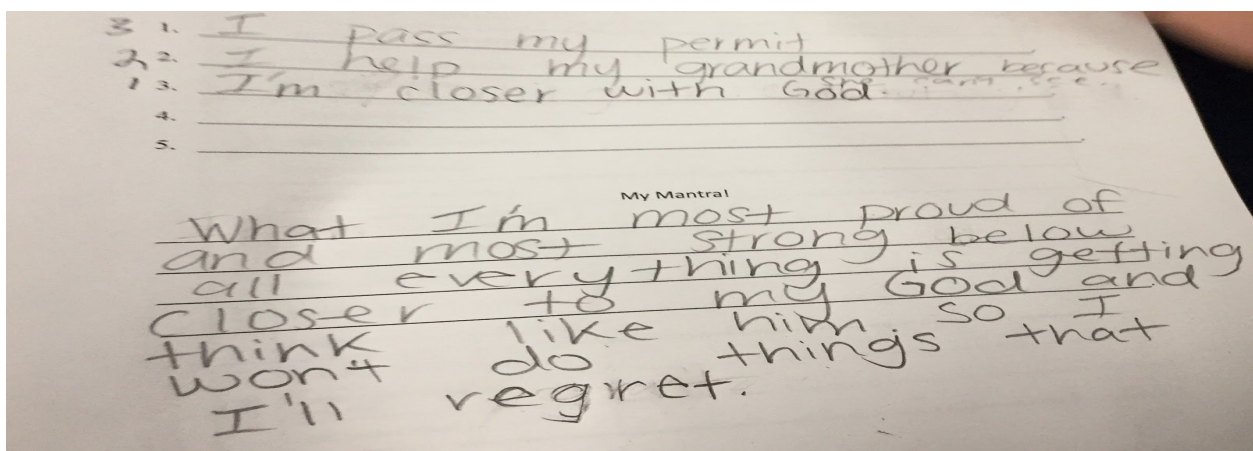 3 1. I pass my permit
2 2. I help my grandmother because
1 3. I'm closer with God.
4.
5.
My Mantra!
What I'm most proud of
and most strong below
all everything is getting
closer to my God and
think like him so I
won't do things that
I'll regret.